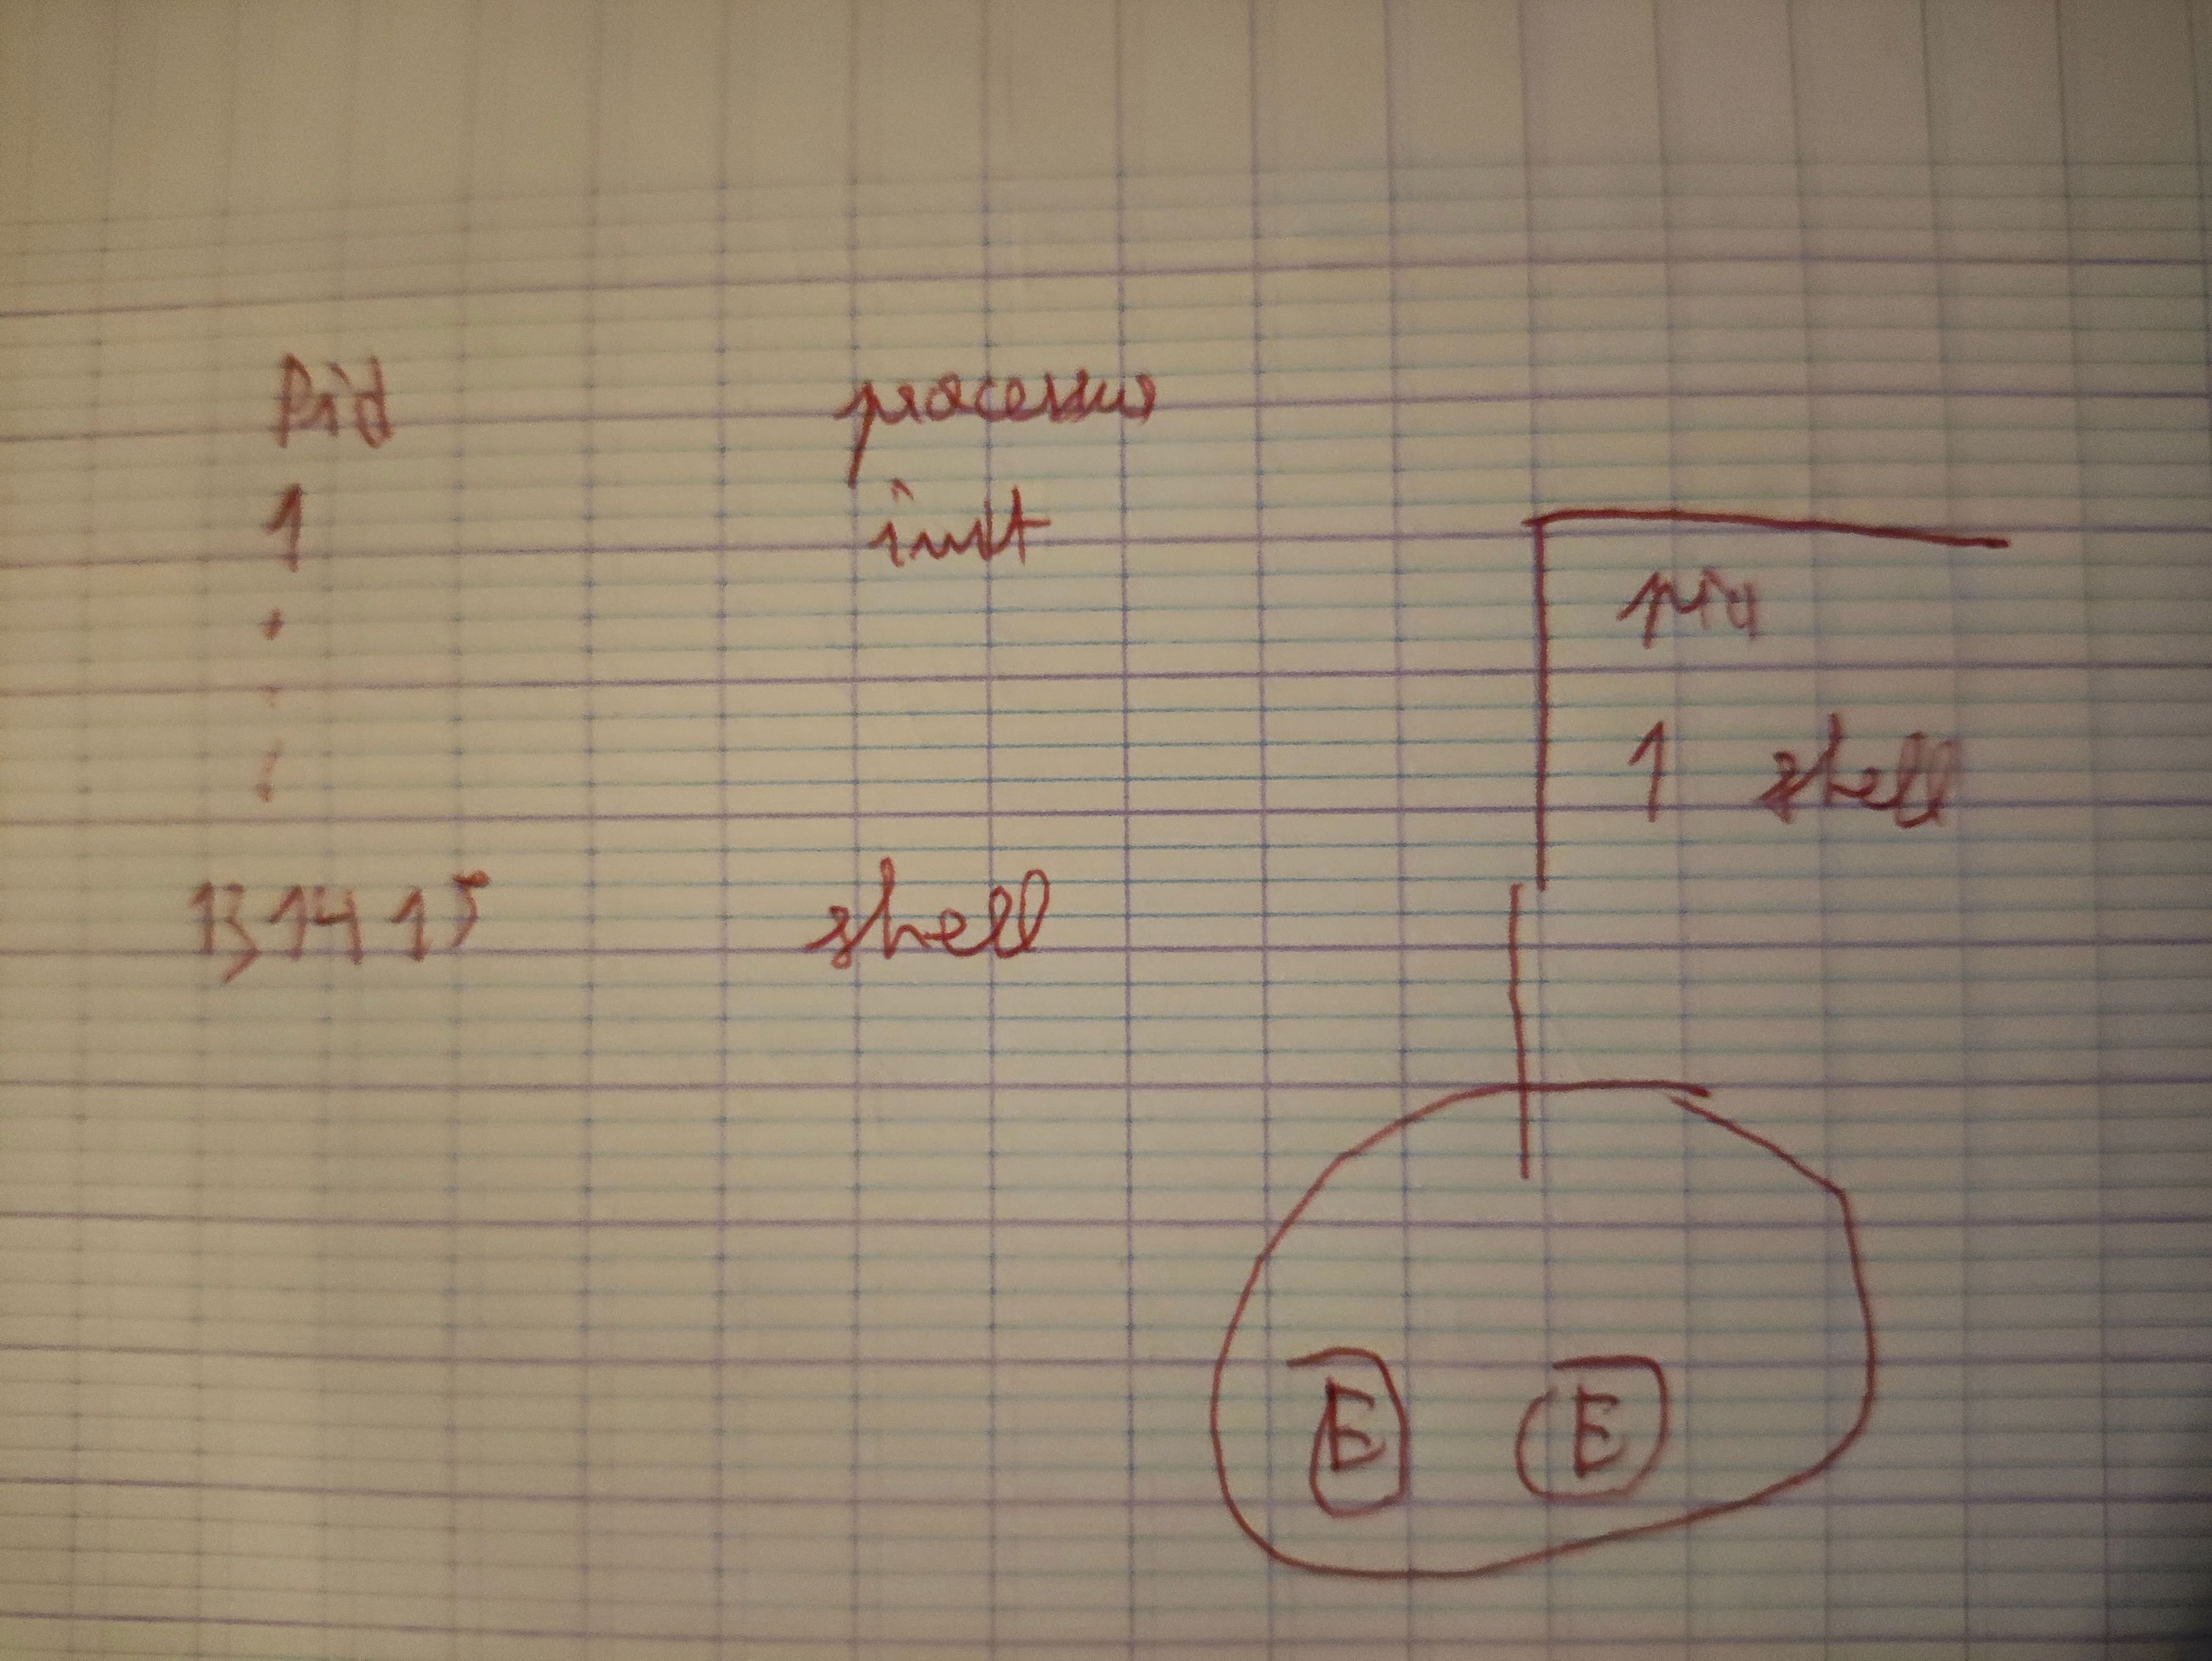 Pid processus
1 init
.
.
.
131415 shell
pid
1 shell
E E